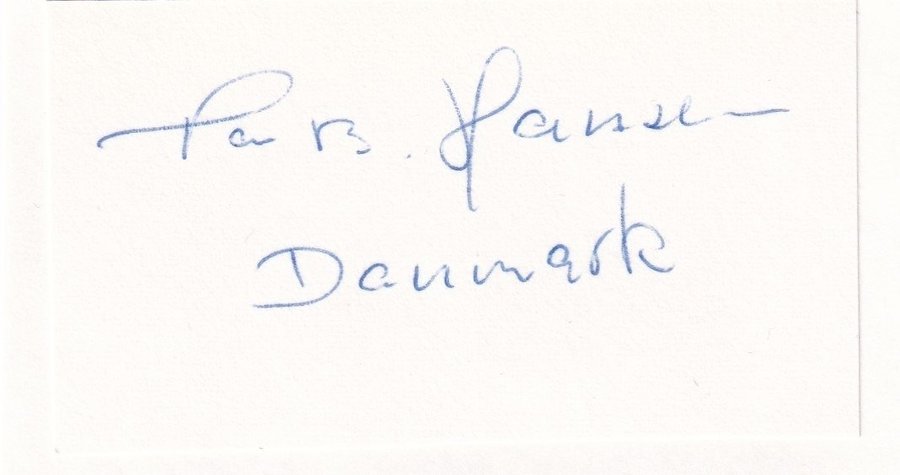 B. Hansen
Danmark